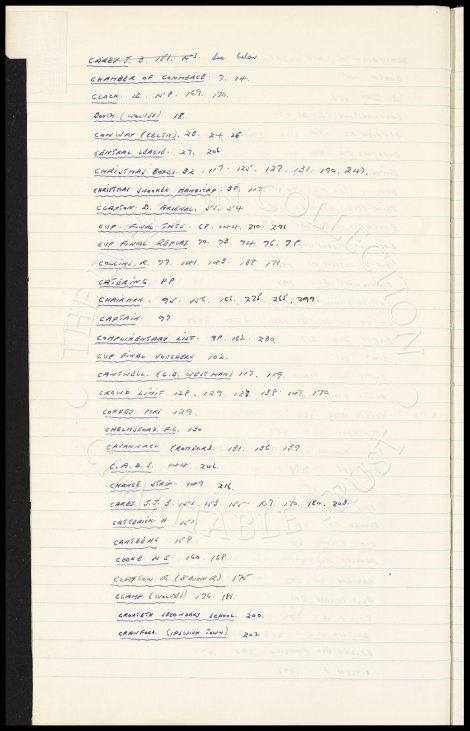 CAREY J. J. 151. 153 See below
CHAMBER OF COMMERCE. 7. 14.
CLOCK. 12. 158. 169. 170.
BOOTH (WOLVES) 18
CONWAY (CELTIC). 23. 24 25
CENTRAL LEAGUE. 27. 206
CHRISTMAS BOXES. 32. 117. 125. 127. 131. 190. 243.
CHRISTMAS SNOOKER HANDICAP. 38. 117.
CLAPTON. D. ARSENAL. 51. 54
CUP. FINAL TKTS. 68. 144. 210. 291
CUP FINAL REPLAY 70. 73. 74 76. 78.
COLLINS. R. 77. 141. 143. 158 171.
CATERING. 88
CHAIRMAN. 95. 156. 166. 276. 268. 299.
CAPTAIN. 97
COMPLIMENTARY LIST. 98. 162. 230.
CUP FINAL VOUCHERS 102.
CANTWELL. (C.B. WEST HAM) 117. 119.
CROWD LIMIT 128. 129. 138 158. 147. 170
COFFEY MRS 129.
CHELMSFORD. F.C. 130
CAVANNAGH (ROMFORD. 131. 136. 139
C.A.D.S. 144. 206.
CHANGE STRIP. 149 216.
CAREY. J.J. 151. 153. 155. 167. 170. 180. 203.
CATTERICK. H. 151
CANTEENS 158
COOKE M.E. 160 168
CLAYTON. R. (B'BURN R) 175
CLAMP. (WOLVES) 176. 181.
CROXTETH SECONDARY SCHOOL. 200.
CRAWFORD. (IPSWICH TOWN) 202
COLLECTION